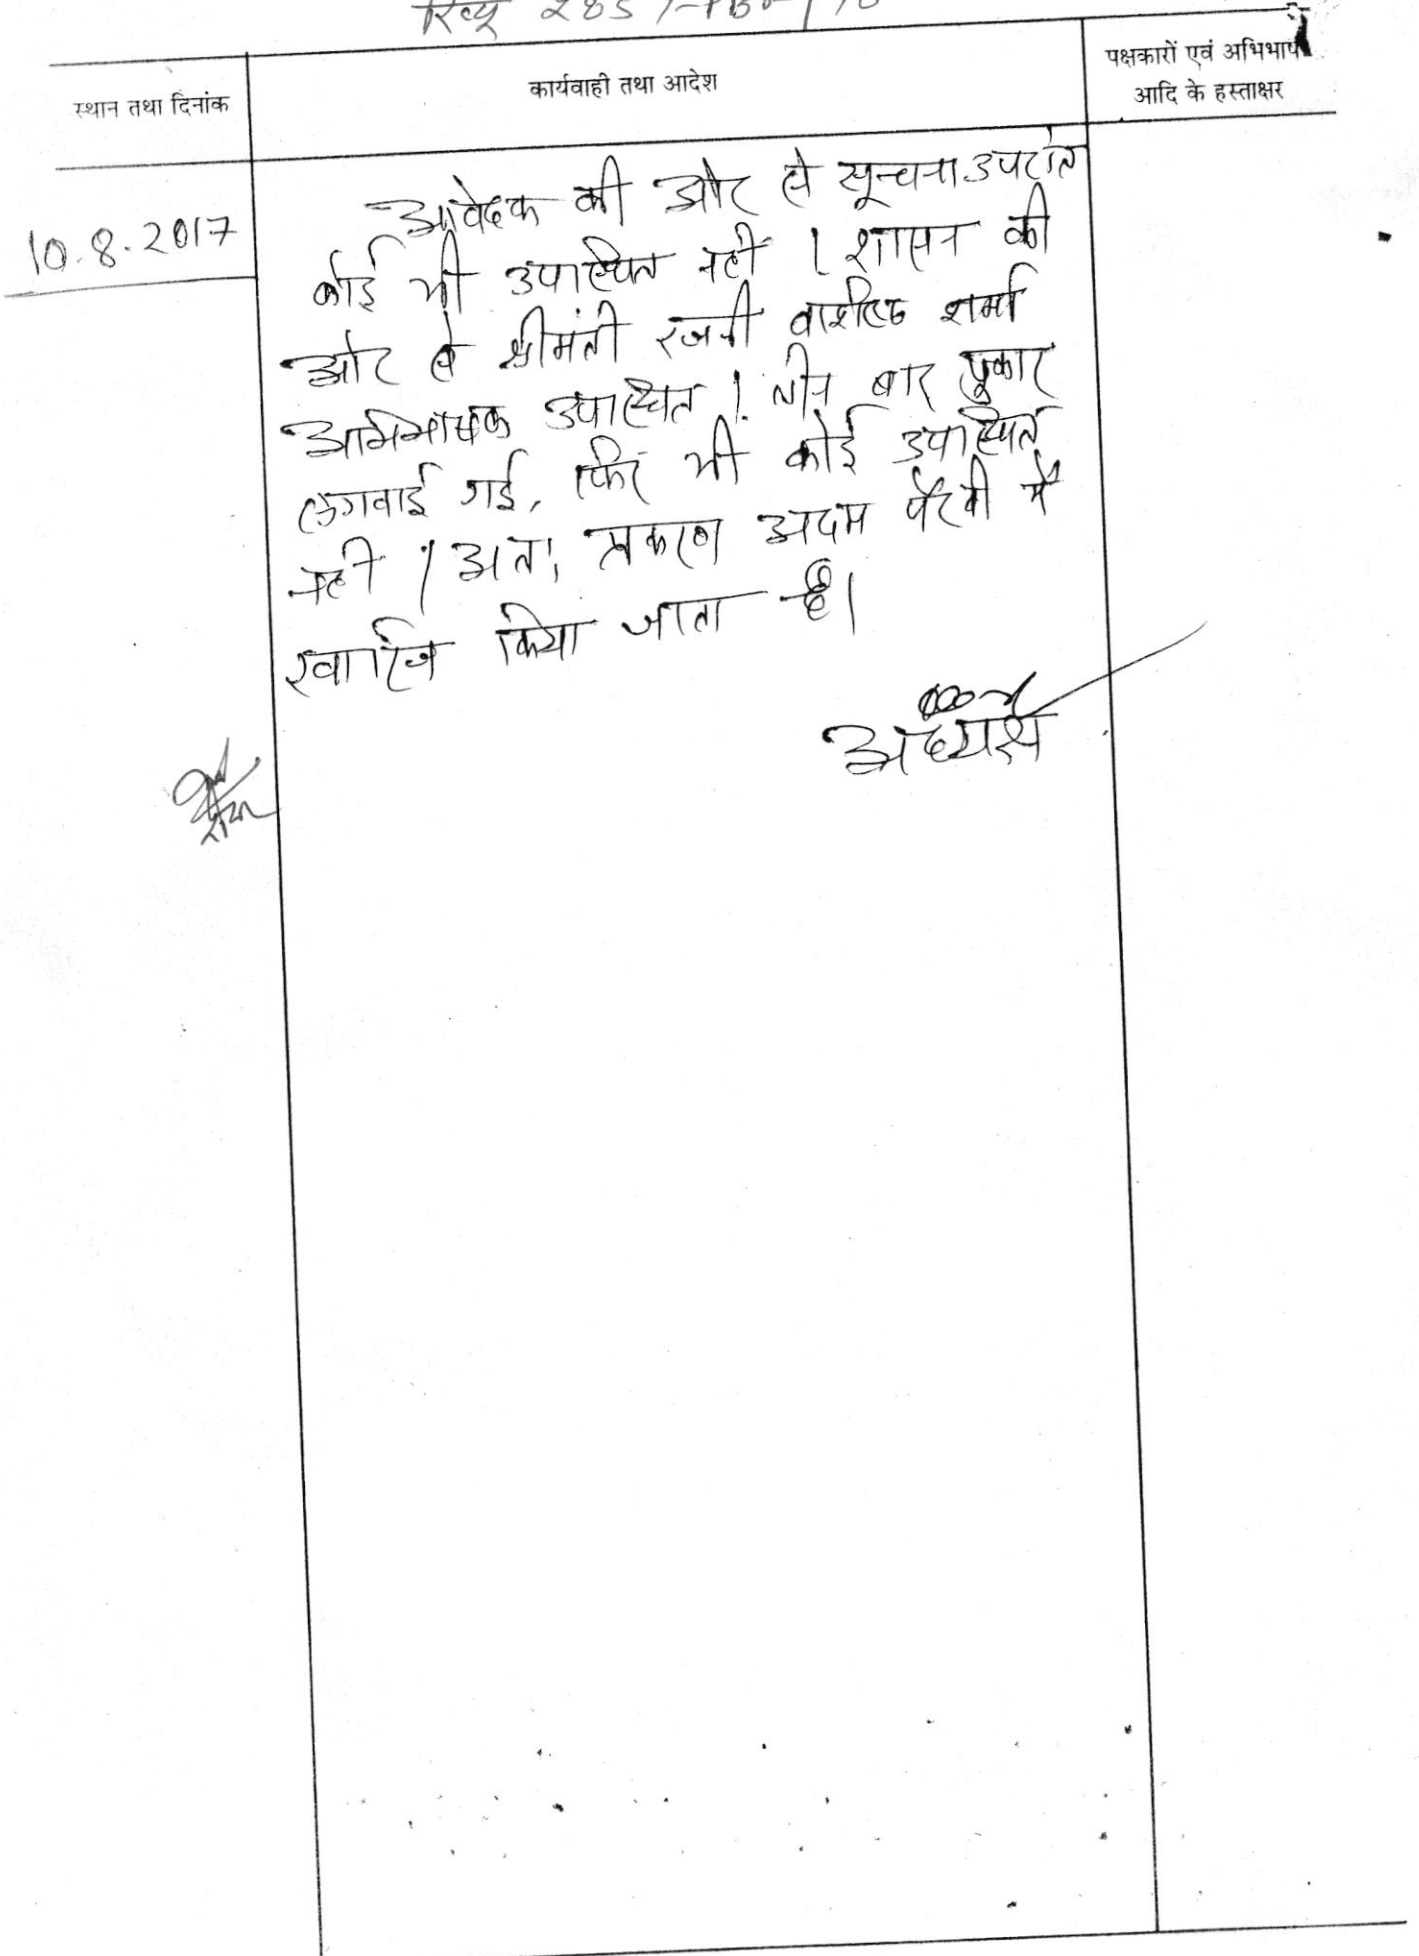 रिव्यू
स्थान तथा दिनांक
कार्यवाही तथा आदेश
पक्षकारों एवं अभिभाष
आदि के हस्ताक्षर
10.8.2017
आवेदक की ओर से सूचना उपरांत
कोई भी उपस्थित नही । शासन की
ओर से श्रीमती रजनी वशिष्ठ शर्मा
अभिभाषक उपस्थित । तीन बार पुकार
लगवाई गई, फिर भी कोई उपस्थित
नही । अतः प्रकरण अदम पैरवी में
खारिज किया जाता है।
अध्यक्ष